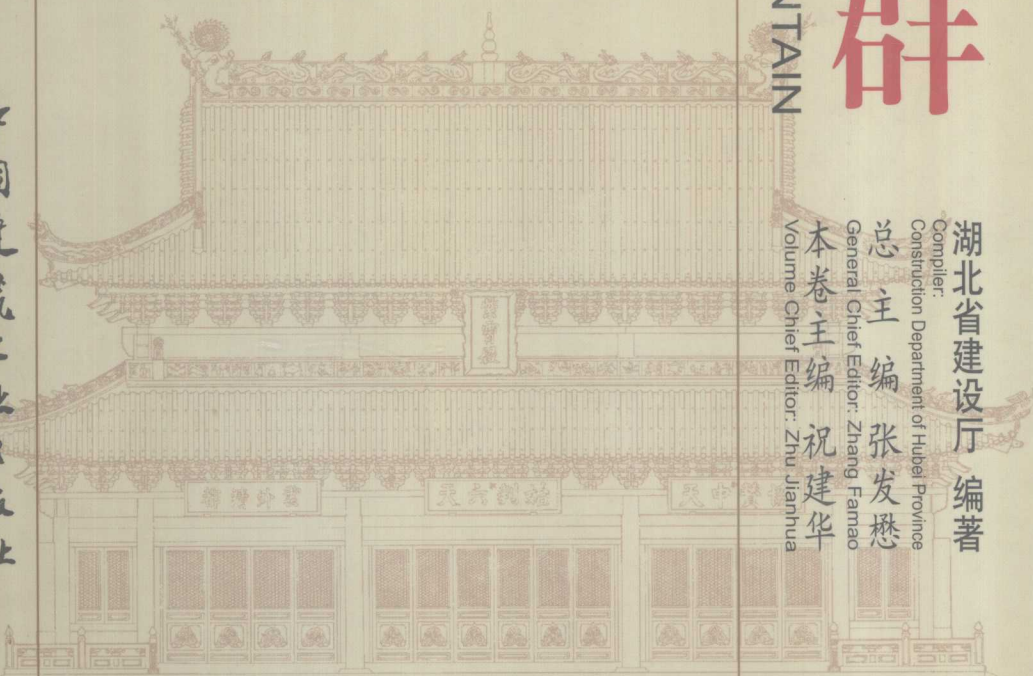 群
NTAIN
湖北省建设厅 编著
Compiler:
Construction Department of Hubei Province
总主编 张发懋
General Chief Editor: Zhang Famao
本卷主编 祝建华
Volume Chief Editor: Zhu Jianhua
中国建筑工业出版社